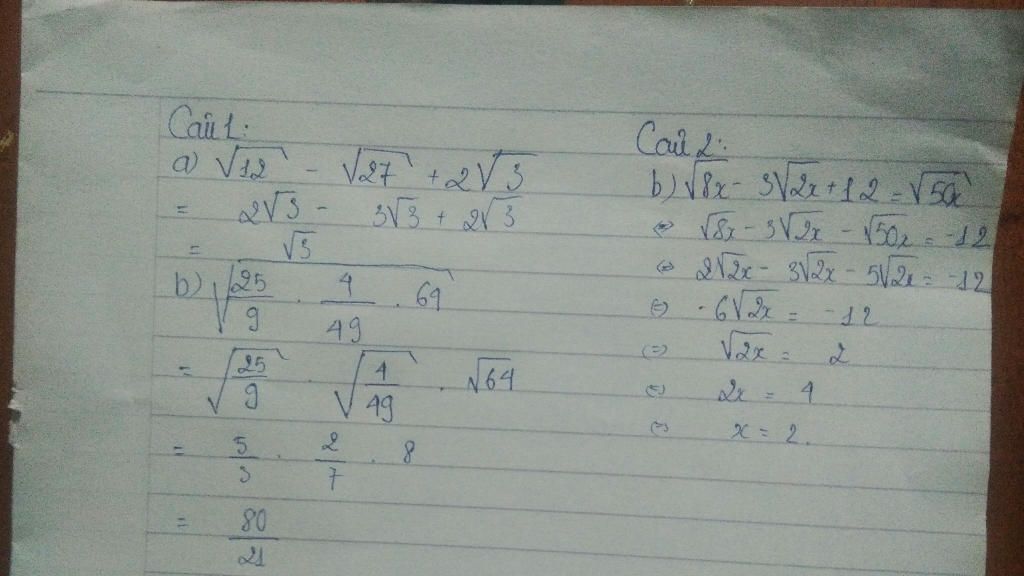 Câu 1:
a) √12 - √27 + 2√3
= 2√3 - 3√3 + 2√3
= √3
b) √(25/9 . 4/49 . 64)
= √(25/9) . √(4/49) . √64
= 5/3 . 2/7 . 8
= 80/21
Câu 2:
b) √8x - 3√2x + 12 = √50x
⇔ √8x - 3√2x - √50x = -12
⇔ 2√2x - 3√2x - 5√2x = -12
⇔ -6√2x = -12
⇔ √2x = 2
⇔ 2x = 4
⇔ x = 2.